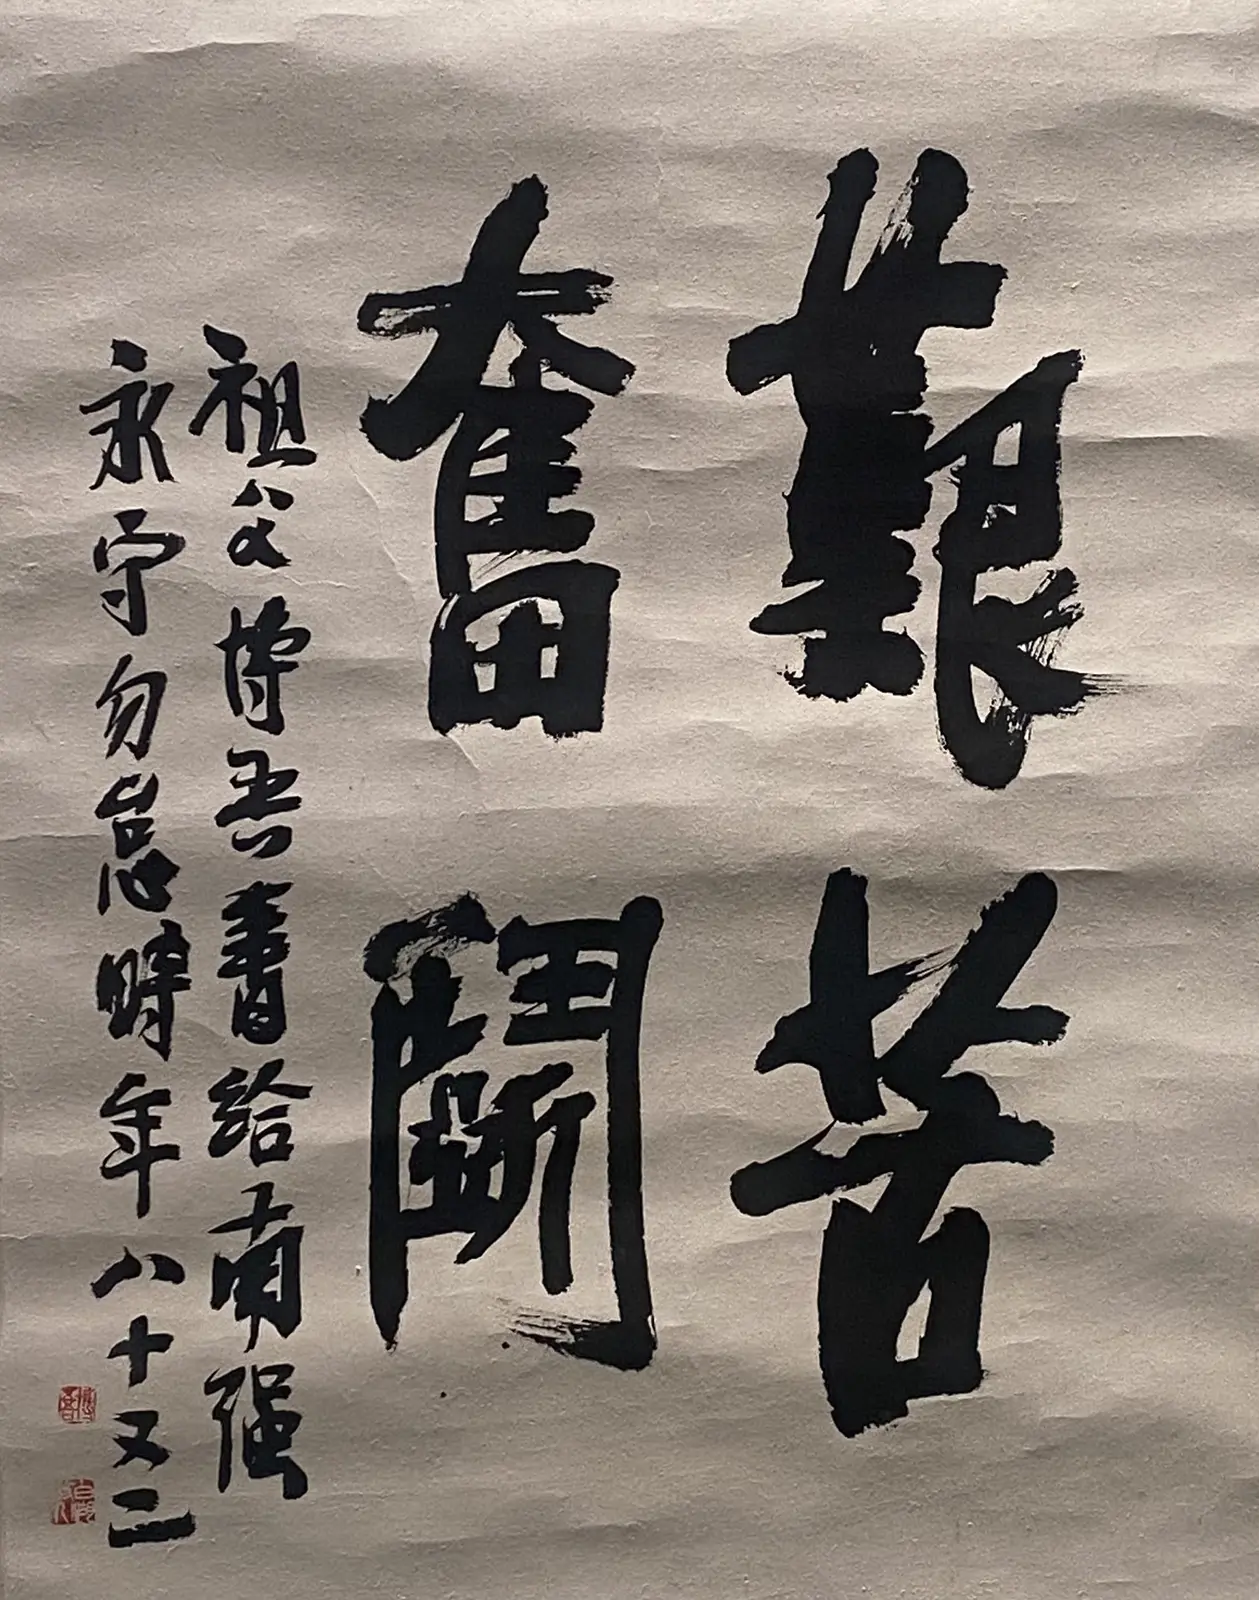 艱苦
奮鬭
祖父博吾書給南强
永守勿怠時年八十又二